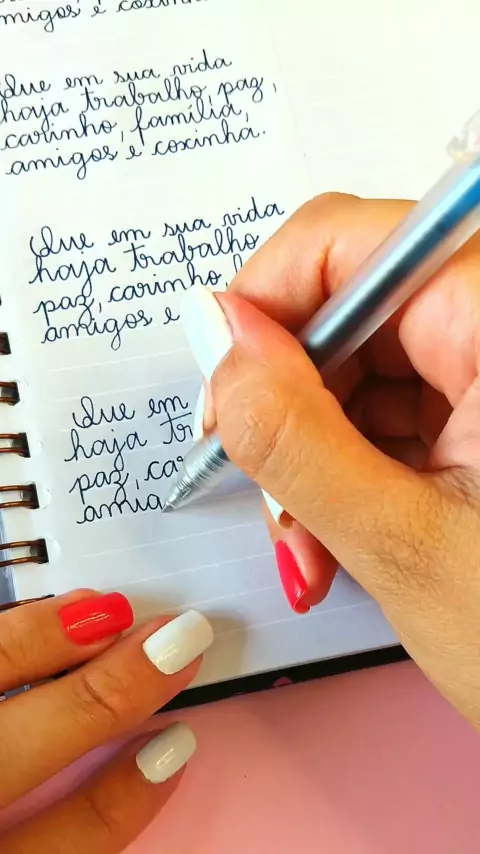 amigos e coxinha.
Que em sua vida
haja trabalho, paz,
carinho, família,
amigos e coxinha.
Que em sua vida
haja trabalho
paz, carinho,
amigos e
Que em
haja
paz,